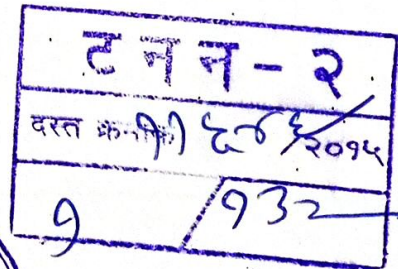 ट न न - २
दस्त क्रमांक ११ /२०१५
१ / १३२